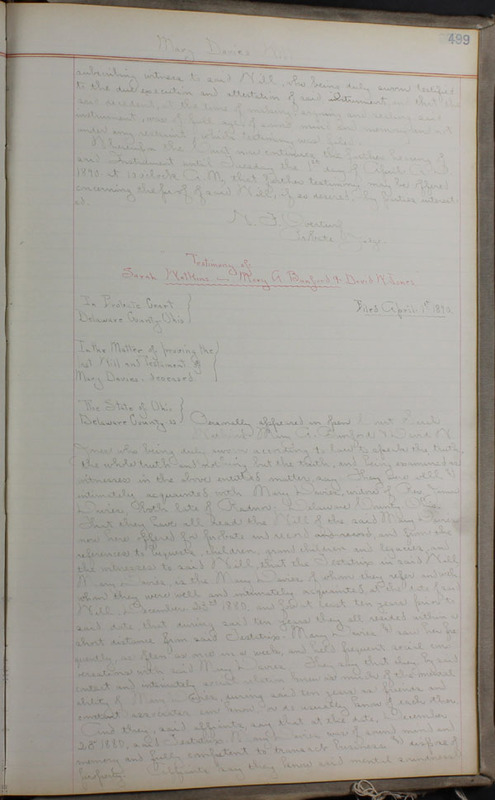 499
Mary Davies Will
subscribing witness to said Will, who being duly sworn testified
to the due execution and attestation of said Instrument, and that the
said decedent, at the time of making, signing and sealing said
instrument, was of full age, of sound mind and memory, and not
under any restraint, whose testimony was filed.
Whereupon the Court now continues the further hearing of
said Instrument until Tuesday the 1st day of April A.D.
1890, at 10 o'clock A.M. that further testimony may be offered
concerning the proof of said Will, if so desired, by parties interest-
ed.
Probate Judge.
Testimony of
Sarah Watkins Mary A. & David
In Probate Court
Delaware County, Ohio
Filed April 1st 1890
In the Matter of proving the
last Will and Testament of
Mary Davies deceased
The State of Ohio
Delaware County ss
Personally appeared in open Court Sarah
Watkins, Mary A. & David W.
Jones who being duly sworn according to law to speak the truth,
the whole truth and nothing but the truth, and being examined as
witnesses in the above entitled matter, say They are well &
intimately acquainted with Mary Davies, widow of
Davies, both late of Radnor, Delaware County Ohio.
That they have all read the Will of the said Mary Davies
now here offered for probate and record and record, and from the
references to bequests, children, grand children and legacies, and
the witnesses to said Will, that the Testatrix in said Will
Mary Davies, is the Mary Davies of whom they refer and with
whom they were well and intimately acquainted at the date of said
Will, December 28th 1880, and for at least ten years prior to
said date that during said ten years they all resided within a
short distance from said Testatrix Mary Davies & saw her fre
quently, as often as once in a week, and held frequent social con
versations with said Mary Davies. They say that they by said
contact and intimately social relation knew as much of the mental
ability of Mary Davies, during said ten years as friends and
constant associates can know or do usually know of each other.
And they, said affiants, say that at the date, December
28th 1880, said Testatrix Mary Davies was of sound mind and
memory and fully competent to transact business & dispose of
property. Affiants say they know said mental soundness